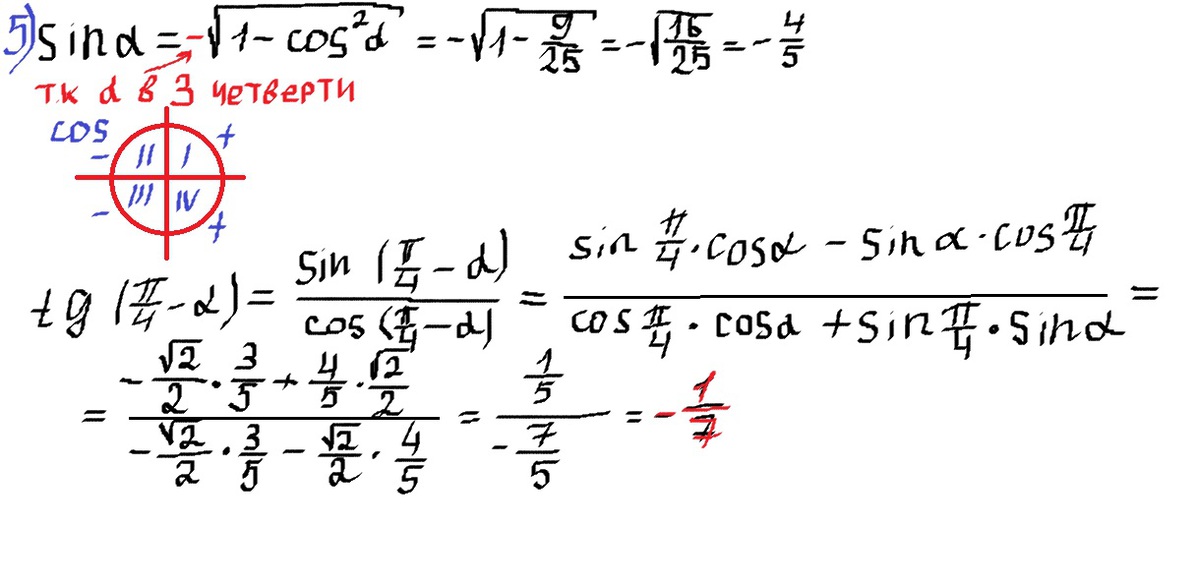 5) sin α = -√(1 - cos²α) = -√(1 - 9/25) = -√(16/25) = - 4/5
т.к α в 3 четверти
cos
- II I +
- III IV +
tg (π/4 - α) = sin (π/4 - α) / cos (π/4 - α) = (sin π/4 · cosα - sin α · cos π/4) / (cos π/4 · cosα + sin π/4 · sin α) =
= (-√2/2 · 3/5 + 4/5 · √2/2) / (-√2/2 · 3/5 - √2/2 · 4/5) = (1/5) / (-7/5) = - 1/7